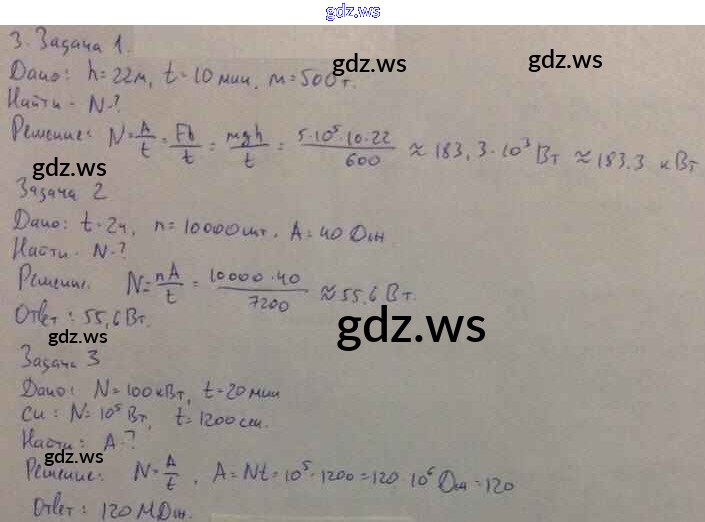 gdz.ws
3. Задача 1.
Дано: h = 22 м, t = 10 мин, m = 500 т.
gdz.ws
Найти - N-?
Решение: N = A/t = Fh/t = mgh/t = 5·10⁵·10·22/600 ≈ 183,3·10³ Вт ≈ 183.3 кВт
gdz.ws
gdz.ws
Задача 2
Дано: t = 2ч, n = 10000 шт. A = 40 Дж.
Найти. N-?
Решение. N = nA/t = 10000·40/7200 ≈ 55,6 Вт.
Ответ: 55,6 Вт.
gdz.ws
gdz.ws
Задача 3
Дано: N = 100 кВт, t = 20 мин
Си: N = 10⁵ Вт, t = 1200 сек.
Найти: A-?
gdz.ws
Решение: N = A/t, A = Nt = 10⁵·1200 = 120·10⁶ Дж = 120
Ответ: 120 МДж.
gdz.ws